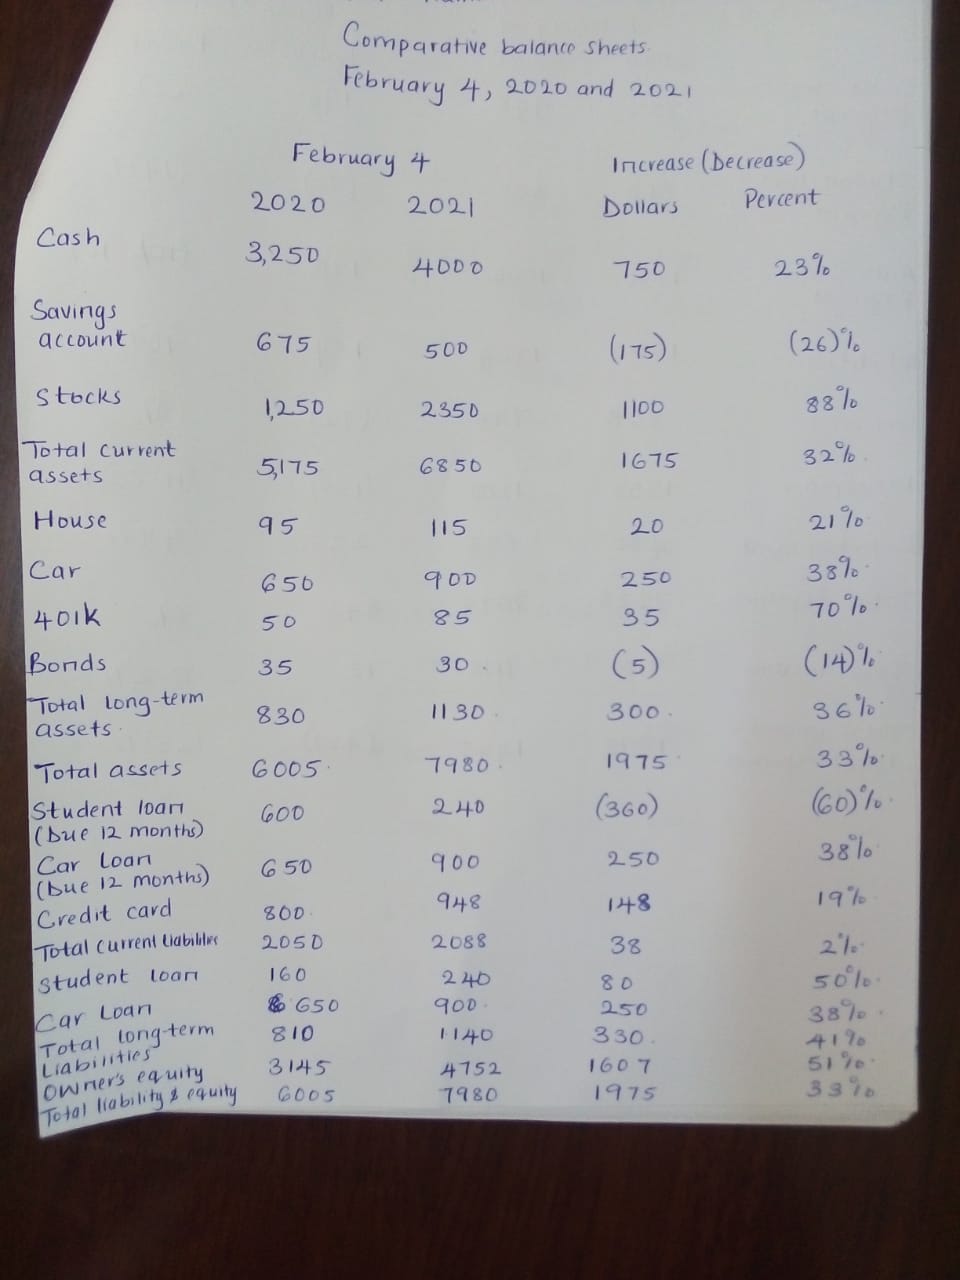 Comparative balance sheets
February 4, 2020 and 2021
February 4 Increase (Decrease)
2020 2021 Dollars Percent
Cash 3,250 4000 750 23%
Savings
account 675 500 (175) (26)%
Stocks 1,250 2350 1100 88%
Total current
assets 5,175 6850 1675 32%
House 95 115 20 21%
Car 650 900 250 38%
401k 50 85 35 70%
Bonds 35 30 (5) (14)%
Total long-term
assets 830 1130 300 36%
Total assets 6005 7980 1975 33%
Student loan 600 240 (360) (60)%
(Due 12 months)
Car Loan 650 900 250 38%
(Due 12 months)
Credit card 800 948 148 19%
Total current liabilities 2050 2088 38 2%
Student loan 160 240 80 50%
Car Loan 650 900 250 38%
Total long-term 810 1140 330 41%
Liabilities
Owner's equity 3145 4752 1607 51%
Total liability & equity 6005 7980 1975 33%